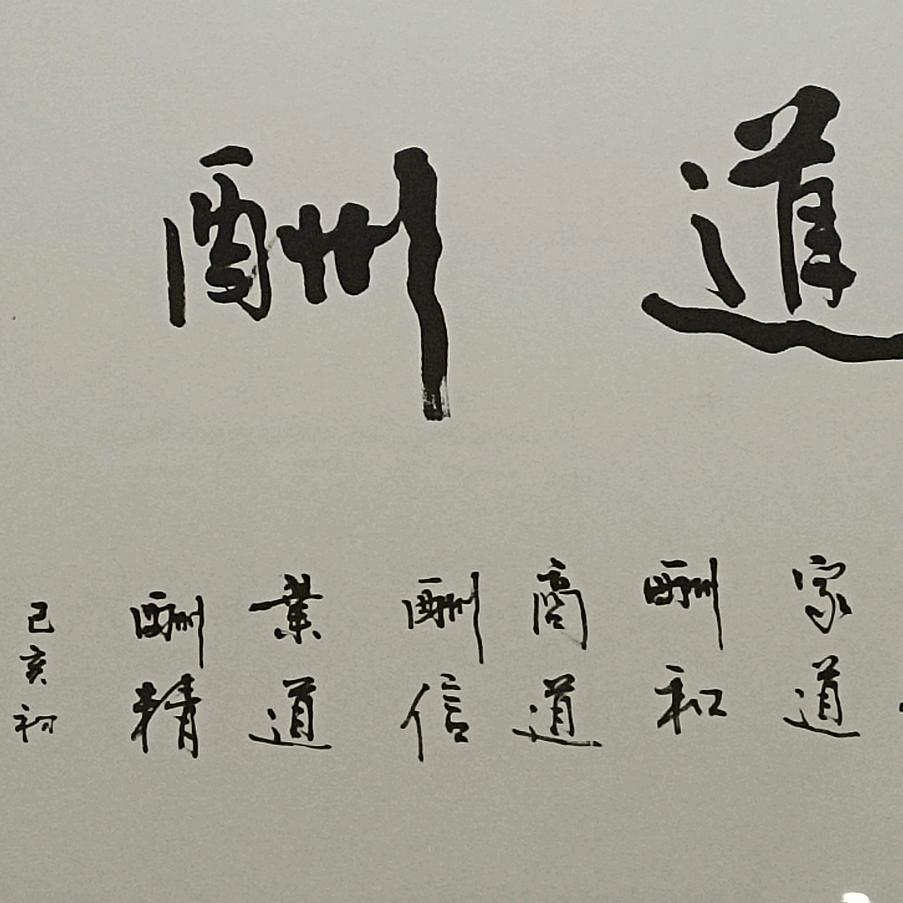 道酬
家道
酬和
商道
酬信
業道
酬精
己亥初